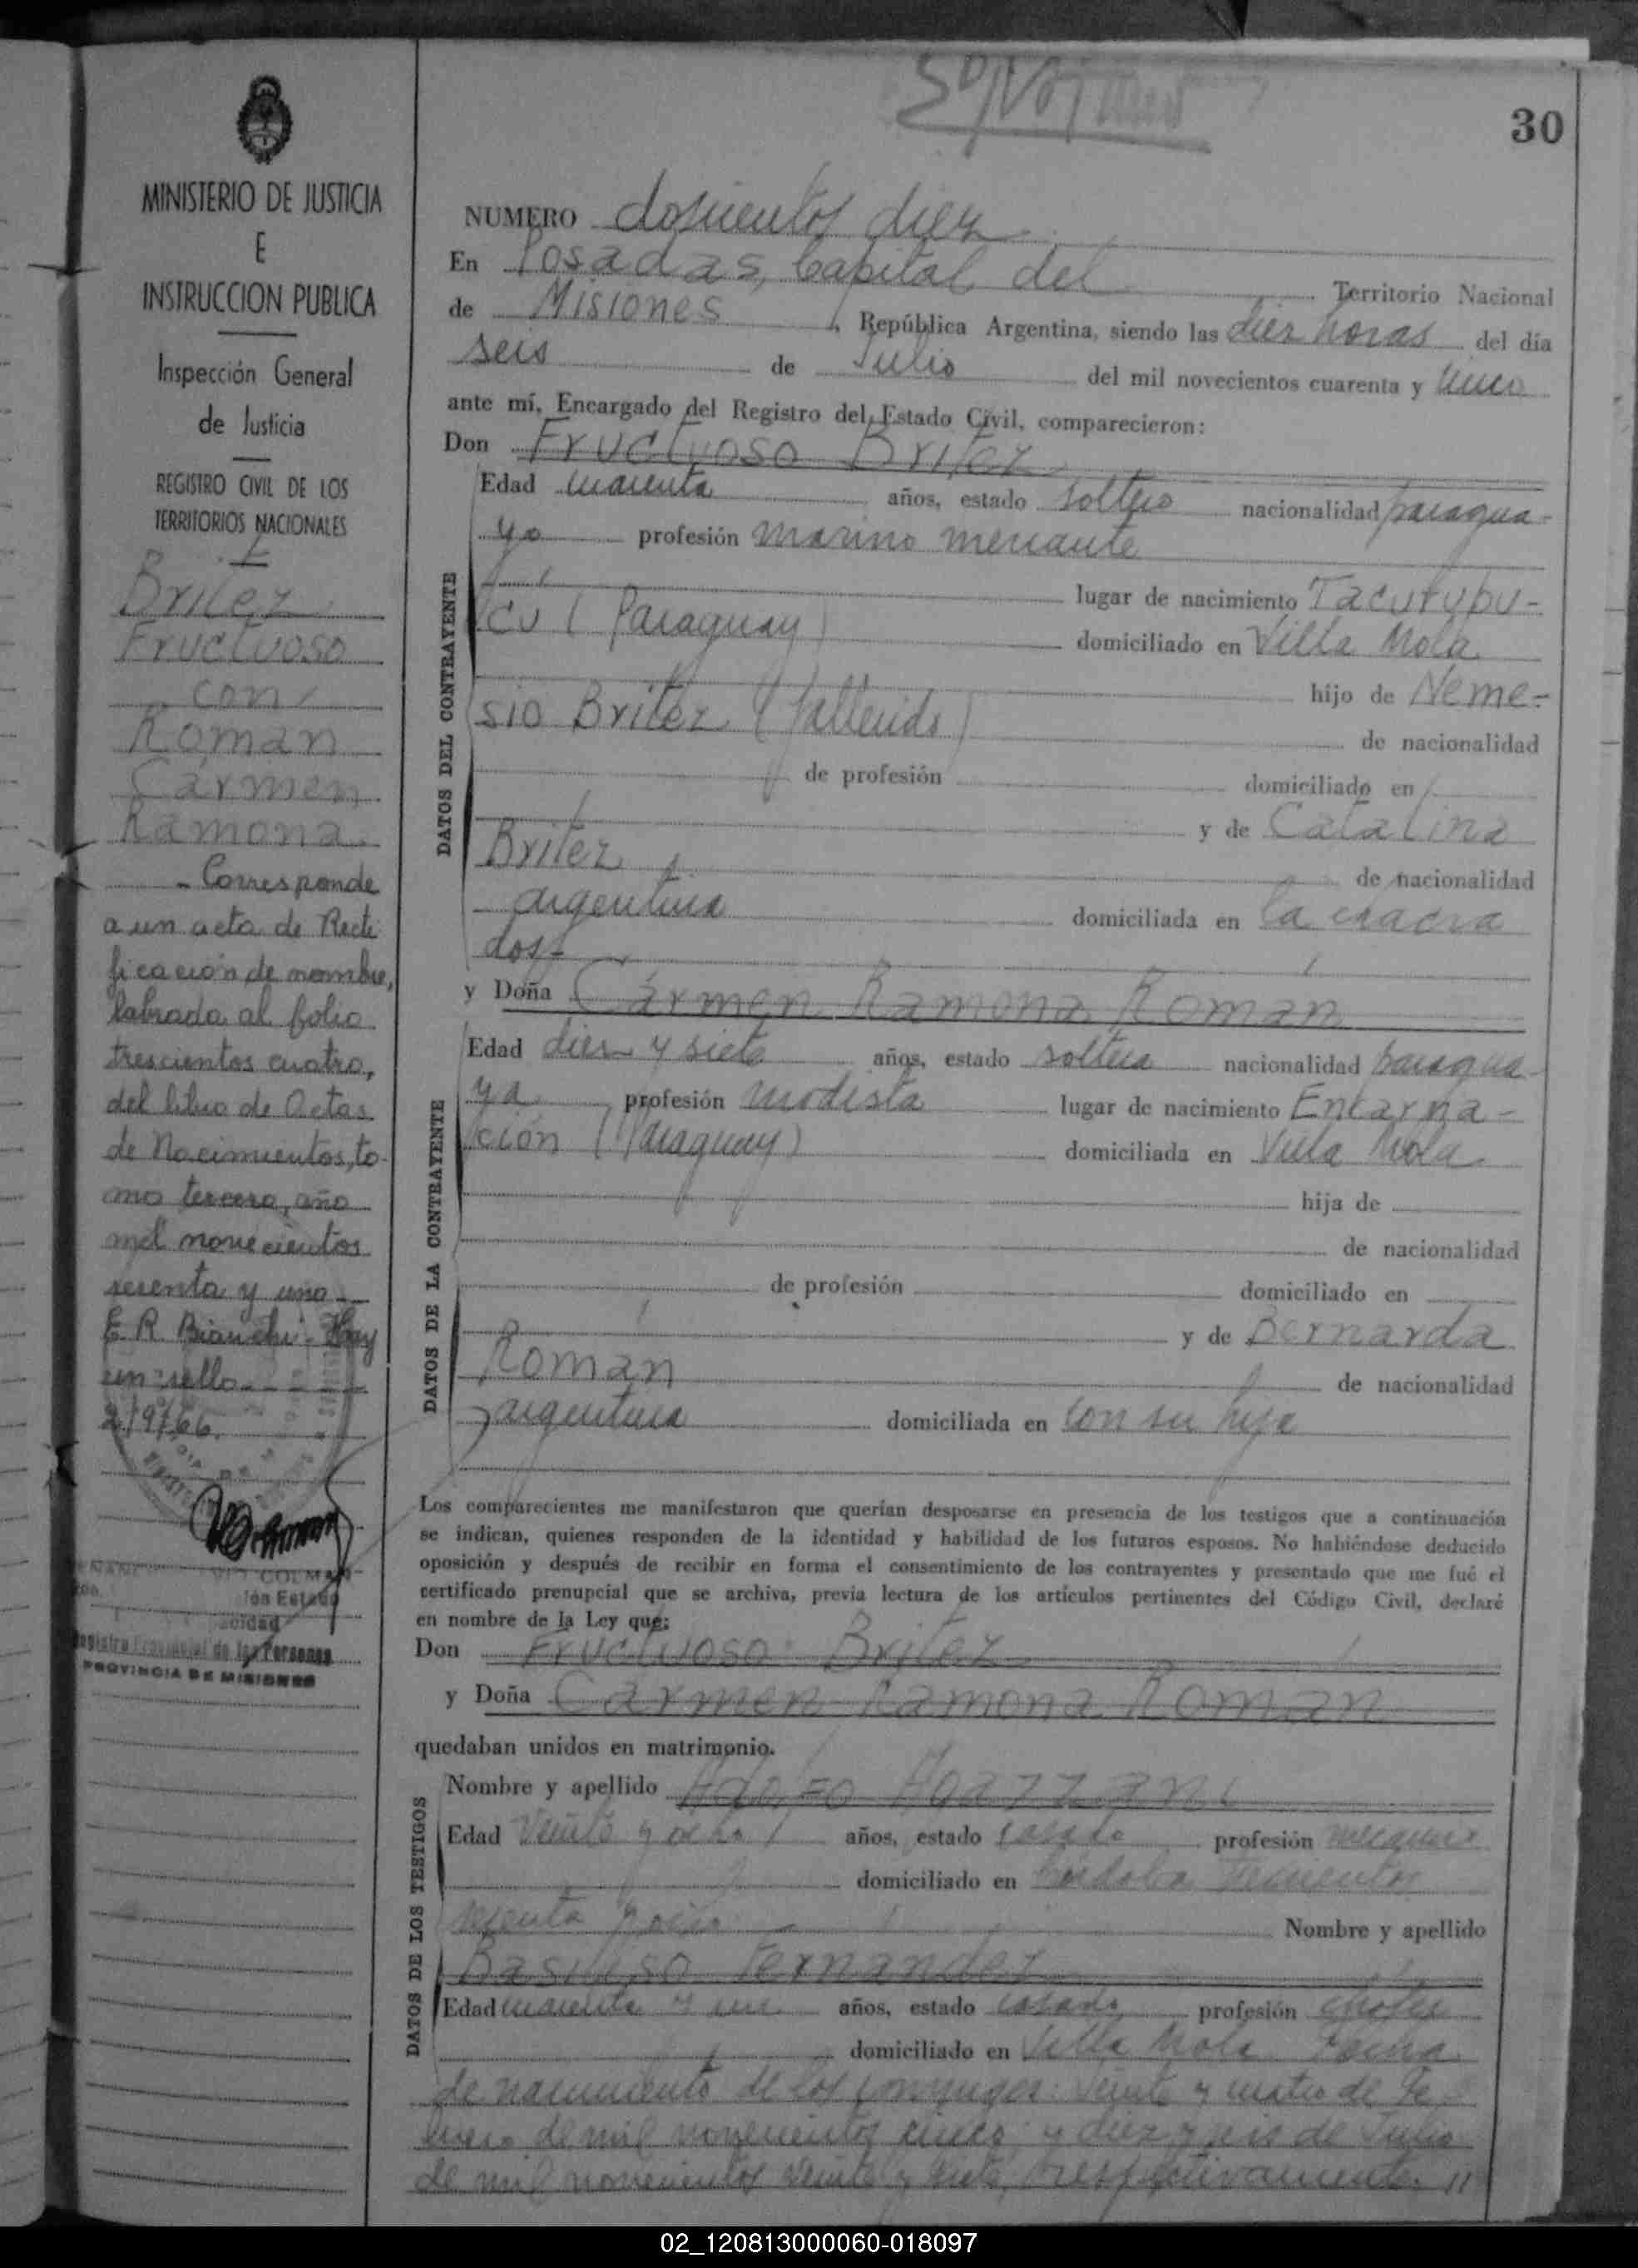 30
MINISTERIO DE JUSTICIA
E
INSTRUCCION PUBLICA
Inspección General
de Justicia
REGISTRO CIVIL DE LOS
TERRITORIOS NACIONALES
Britez
Fructuoso
con
Roman
Cármen
Ramona.
- Corresponde
a un acta de Recti
ficación de nombre,
labrada al folio
trescientos cuatro,
del libro de Actas
de Nacimientos, to-
mo tercero, año
mil novecientos
sesenta y uno
E. R. Bianchi - Hay
un sello
2/9/66.
Registro Provincial de las Personas
PROVINCIA DE MISIONES
NUMERO doscientos diez
En Posadas, Capital del Territorio Nacional
de Misiones, República Argentina, siendo las diez horas del día
seis de Julio del mil novecientos cuarenta y cinco
ante mí, Encargado del Registro del Estado Civil, comparecieron:
Don Fructuoso Britez
DATOS DEL CONTRAYENTE
Edad cuarenta años, estado soltero nacionalidad paragua-
yo profesión marino mercante
lugar de nacimiento Tacurupu-
cú (Paraguay) domiciliado en Villa Mola
hijo de Neme-
sio Britez (fallecido) de nacionalidad
de profesión domiciliado en
y de Catalina
Britez de nacionalidad
argentina domiciliada en la chacra
dos-
y Doña Cármen Ramona Roman
DATOS DE LA CONTRAYENTE
Edad diez y siete años, estado soltera nacionalidad paragua-
ya profesión modista lugar de nacimiento Encarna-
ción (Paraguay) domiciliada en Villa Mola
hija de
de nacionalidad
de profesión domiciliado en
y de Bernarda
Roman de nacionalidad
argentina domiciliada en con su hija
Los comparecientes me manifestaron que querían desposarse en presencia de los testigos que a continuación
se indican, quienes responden de la identidad y habilidad de los futuros esposos. No habiéndose deducido
oposición y después de recibir en forma el consentimiento de los contrayentes y presentado que me fué el
certificado prenupcial que se archiva, previa lectura de los artículos pertinentes del Código Civil, declaré
en nombre de la Ley que:
Don Fructuoso Britez
y Doña Carmen Ramona Roman
quedaban unidos en matrimonio.
DATOS DE LOS TESTIGOS
Nombre y apellido
Edad veinte y ocho años, estado casado profesión
domiciliado en Córdoba trescientos
Nombre y apellido
Fernandez
Edad cuarenta y un años, estado casado profesión chofer
domiciliado en Villa Mola Fecha
de nacimiento de los conyuges: veinte y cuatro de Fe-
brero de mil novecientos cinco; y diez y seis de Julio
de mil novecientos veinte y siete, respectivamente. //
02_120813000060-018097